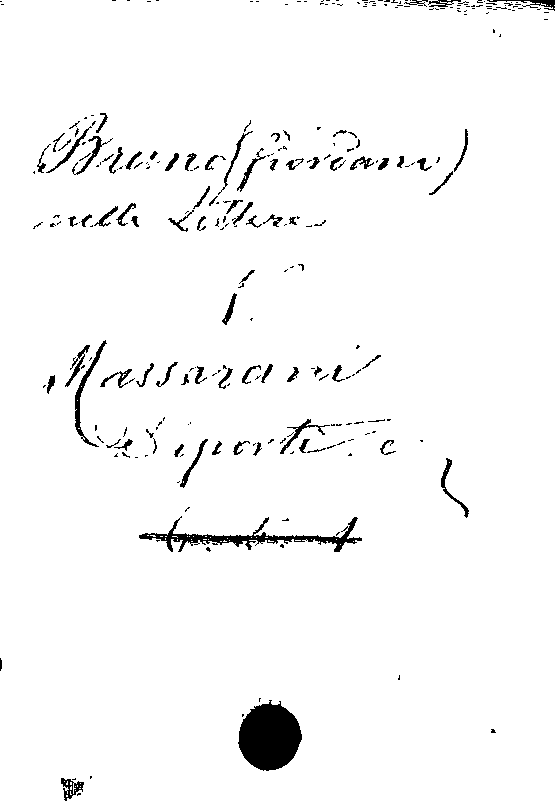 Bruno (Giordano)
nelle Lettere
V.
Massarani
Diporti. e